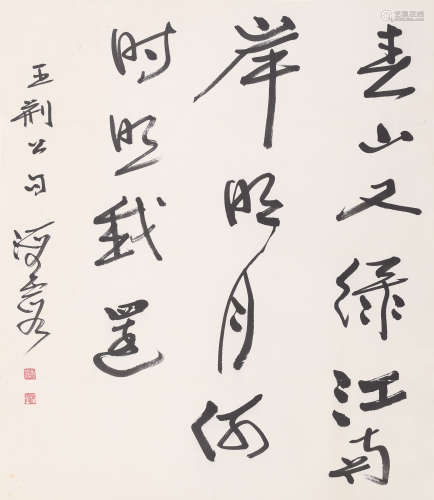 春山又绿江南
岸明月何
时照我还
王荆公句